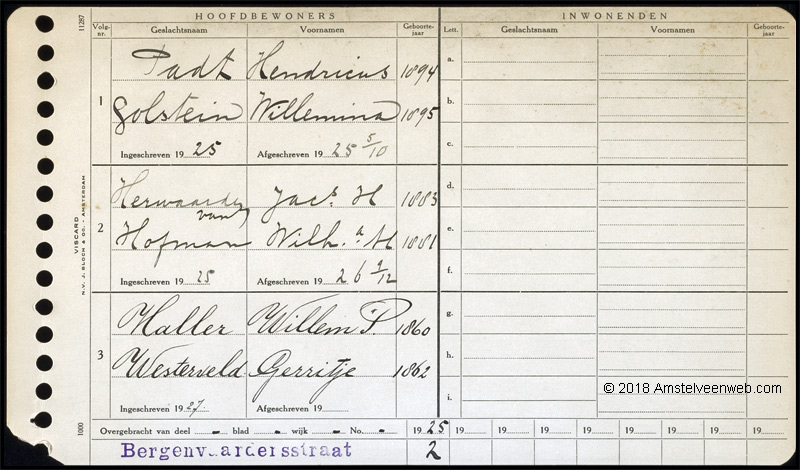 HOOFDBEWONERS INWONENDEN
11287
Volg-nr. Geslachtsnaam Voornamen Geboorte-jaar Lett. Geslachtsnaam Voornamen Geboorte-jaar
Padt Hendricus 1894 a.
1
Golstein Willemina 1895 b.
Ingeschreven 19 25 Afgeschreven 19 25 5/10 c.
Herwaarden van Jacs. H 1883 d.
2
Hofman Wilh.a H 1881 e.
Ingeschreven 19 25 Afgeschreven 19 26 9/12 f.
Haller Willem P. 1860 g.
3
Westerveld Gerritje 1862 h.
Ingeschreven 19 27. Afgeschreven 19 i.
VISCARD
N.V. J. BLOCH & CO. - AMSTERDAM
1000
© 2018 Amstelveenweb.com
Overgebracht van deel - blad - wijk - No. - 19 25 19 19 19 19 19 19 19 19
Bergenvaardersstraat 2